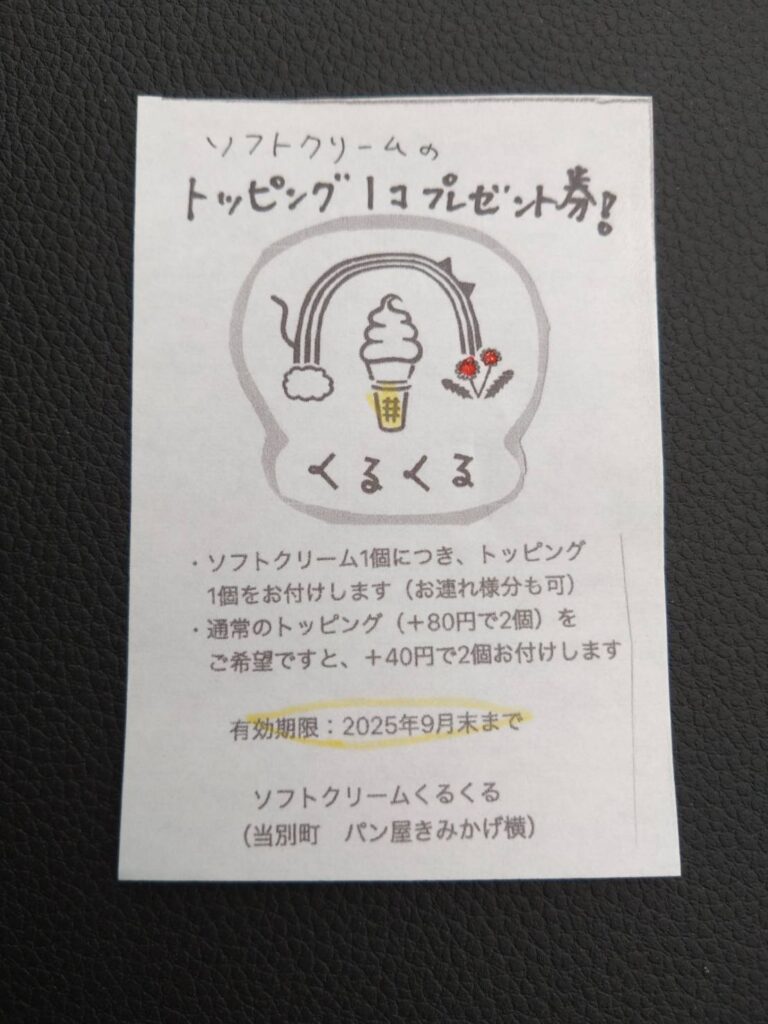 ソフトクリームの
トッピング1コプレゼント券!
くるくる
・ソフトクリーム1個につき、トッピング
1個をお付けします（お連れ様分も可）
・通常のトッピング（＋80円で2個）を
ご希望ですと、＋40円で2個お付けします
有効期限：2025年9月末まで
ソフトクリームくるくる
（当別町　パン屋きみかげ横）